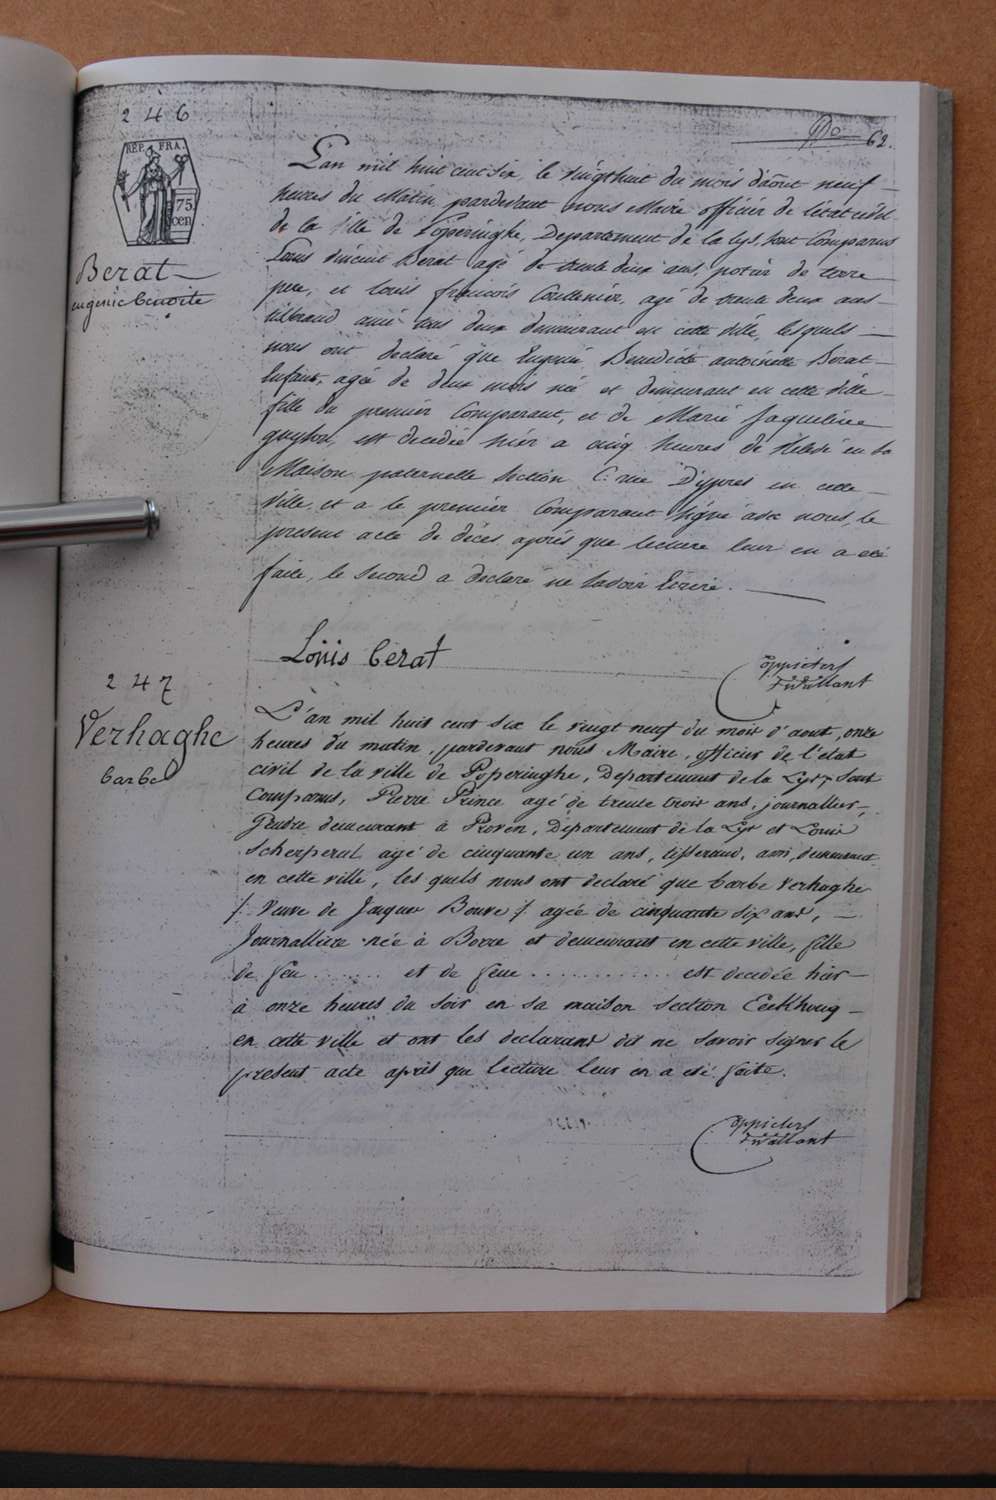 246
62.
RÉP. FRA.
75
cen
Berat
eugenie benoite
L'an mil huit cent six le vingt huit du mois d'août neuf
heures du Matin pardevant nous Maire officier de l'état civil
de la Ville de Poperinghe, Departement de la Lys, sont Comparus
Louis vincent Berat agé de trente deux ans, potier de terre
pere, et louis francois Couttenier, agé de trente deux ans
tisserand ami tous deux demeurant en cette ville, lesquels
nous ont declaré que Eugenie Benedicte antoinette Berat
Enfant, agée de deux mois née et demeurant en cette ville
fille du premier Comparant, et de Marie Jaqueline
est decedée hier a cinq heures de en sa
Maison paternelle Section C. rue D'ypres en cette
Ville, et a le premier Comparant signé avec nous, le
present acte de décès après que lecture leur en a été
faite, le second a declaré ne savoir Ecrire.
Louis berat
Coppieters
t'wallant
247
Verhaghe
barbe
L'an mil huit cent six le vingt neuf du mois d'aout, onze
heures du matin, pardevant nous Maire, officier de l'état
civil de la ville de Poperinghe, Departement de la Lys, sont
Comparus, Pierre Prince agé de trente trois ans, journallier,
Gendre demeurant à Proven, Departement de la Lys et Louis
Scherpereel agé de cinquante un ans, tisserand, ami, demeurant
en cette ville, les quels nous ont declaré que barbe verhaghe
/. Veuve de Jacque Bouve /. agée de cinquante six ans,
Journalliere née à Borre et demeurant en cette ville, fille
de feu ....... et de feue ............ est decedée hier
à onze heures du soir en sa maison section Eekhoug
en cette ville et ont les declarans dit ne savoir signer le
present acte après que lecture leur en a été faite.
Coppieters
t'wallant